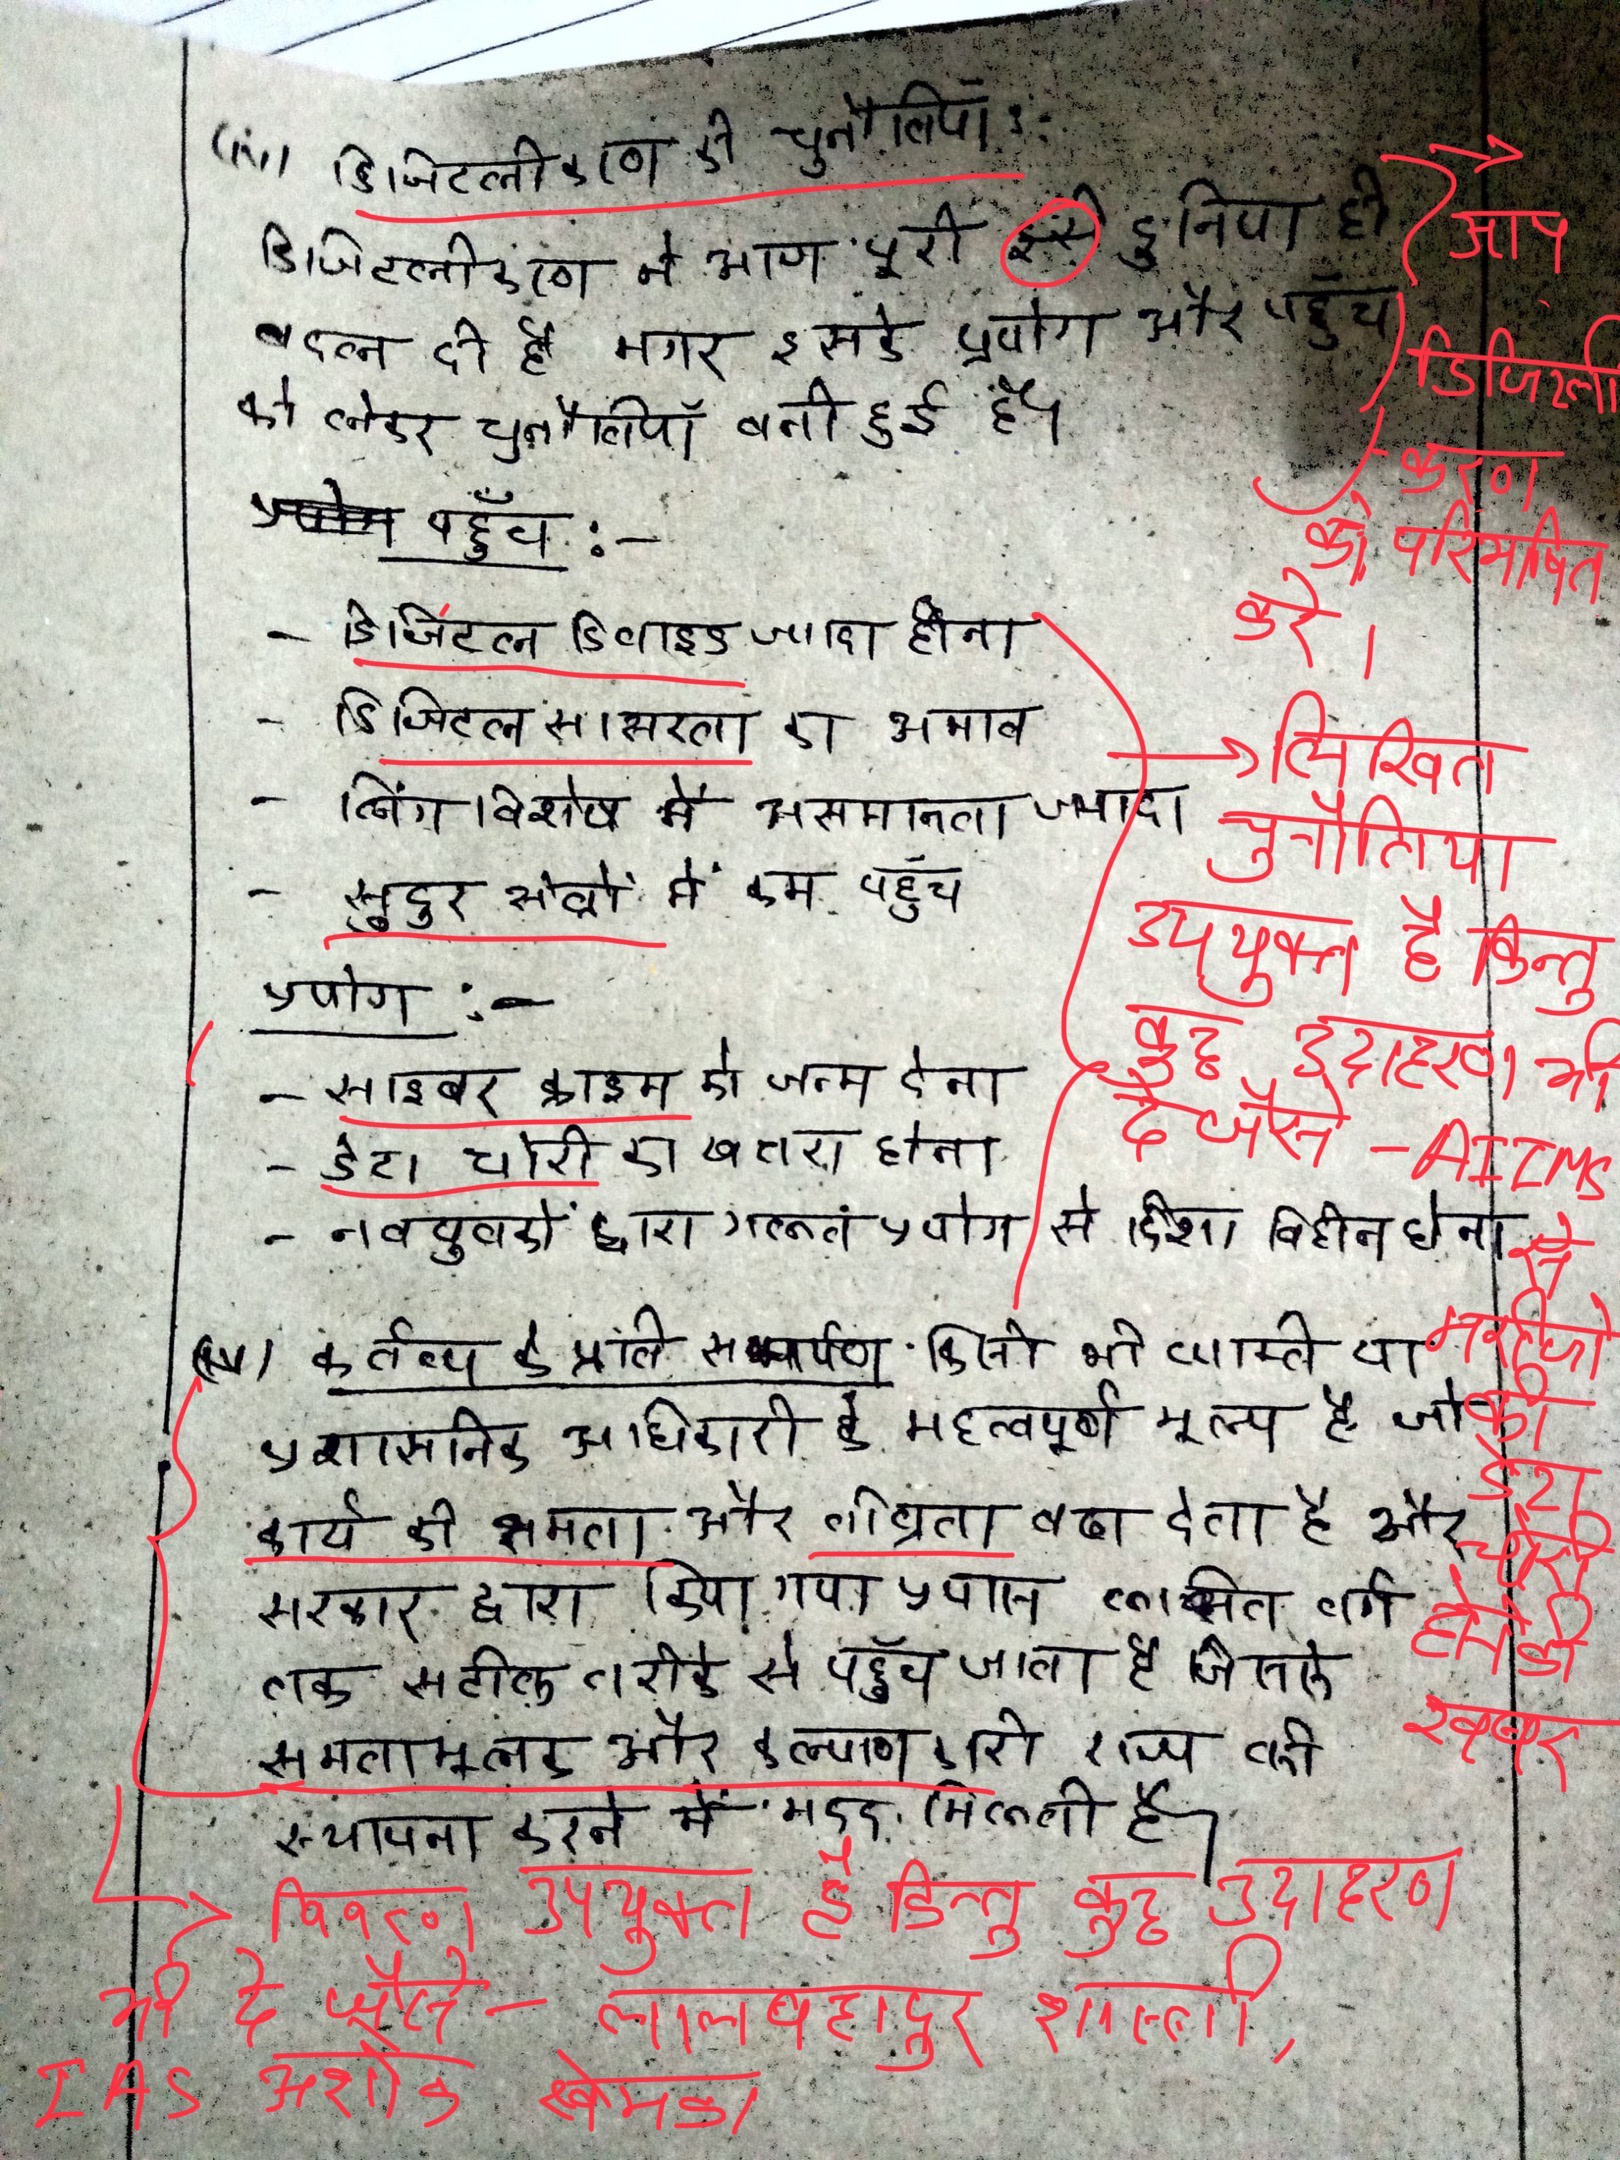 (iii) डिजिटलीकरण की चुनौतियाँ :-
डिजिटलीकरण ने आज पूरी इस दुनिया ही
बदल दी है मगर इसके प्रयोग और पहुँच
को लेकर चुनौतियाँ बनी हुई है।
पहुँच :-
- डिजिटल डिवाइड ज्यादा होना
- डिजिटल साक्षरता का अभाव
- लिंग विशेष में असमानता ज्यादा
- सुदुर क्षेत्रों में कम पहुँच
प्रयोग :-
- साइबर क्राइम को जन्म देना
- डेटा चोरी का खतरा होना
- नवयुवकों द्वारा गलत प्रयोग से दिशा विहीन होना
(iv) कर्तव्य के प्रति समर्पण किसी भी व्यक्ति या
प्रशासनिक अधिकारी के महत्वपूर्ण मूल्य है जो
कार्य की क्षमता और तीव्रता बढा देता है और
सरकार द्वारा किया गया प्रयास लक्षित वर्ग
तक सटीक तरीके से पहुँच जाता है जिससे
समतामूलक और कल्याणकारी राज्य की
स्थापना करने में मदद मिलती है।
आप
डिजिटली
करण
को परिभाषित
करे।
लिखित
चुनौतिया
उपयुक्त है किन्तु
कुछ उदाहरण भी
दे जैसे - AIIMS
से
मरीजो
की
डेटा
चोरी
होने की
खबर
विवरण उपयुक्त है किन्तु कुछ उदाहरण
भी दे जैसे - लालबहादुर शास्त्री,
IAS अशोक खेमका